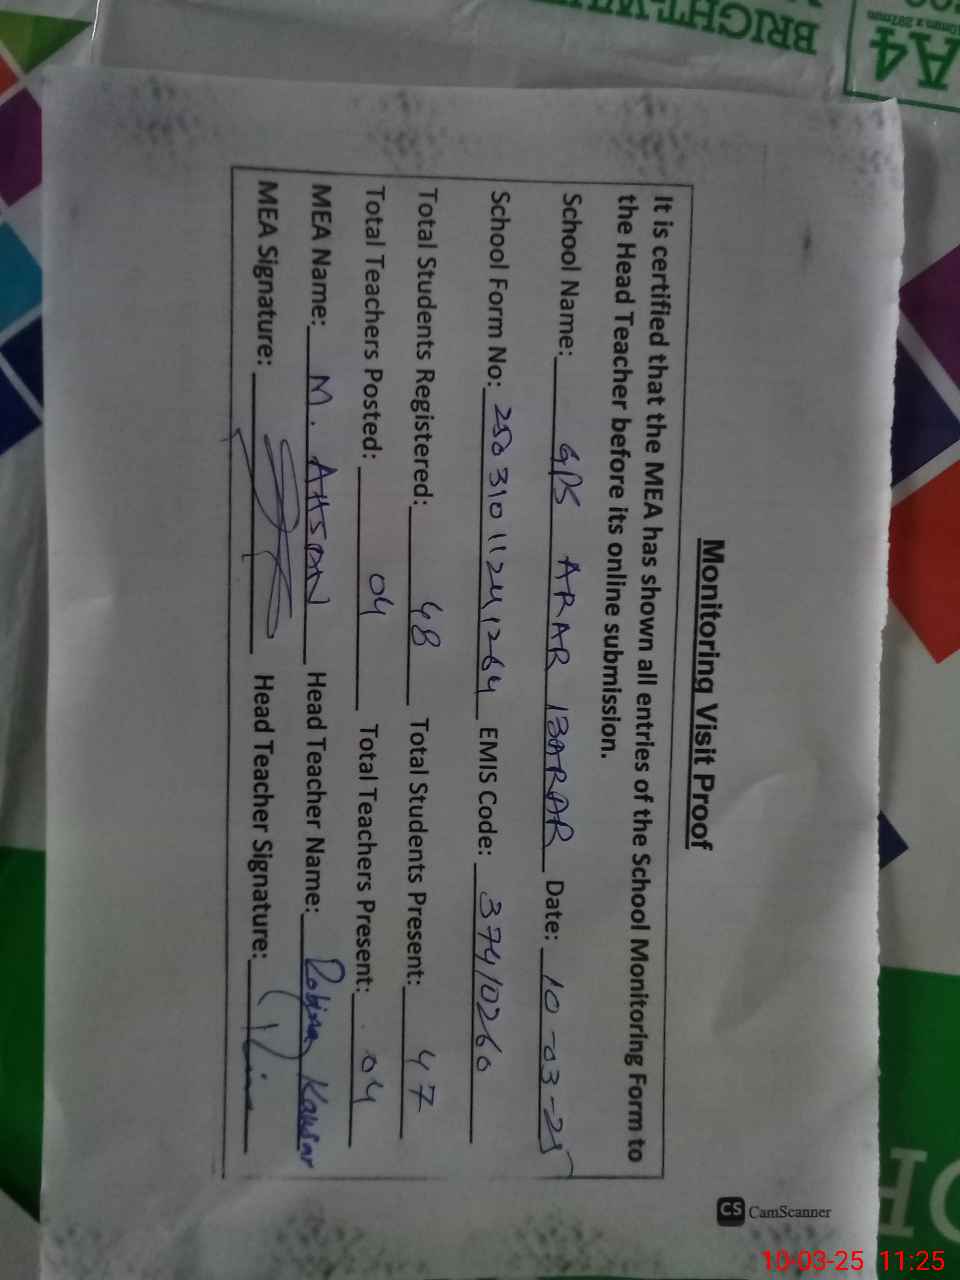 Monitoring Visit Proof
It is certified that the MEA has shown all entries of the School Monitoring Form to
the Head Teacher before its online submission.
School Name: GPS ARAR BARAR Date: 10-03-25
School Form No: 25031011241264 EMIS Code: 37410260
Total Students Registered: 48 Total Students Present: 47
Total Teachers Posted: 04 Total Teachers Present: 04
MEA Name: M. AHSAN Head Teacher Name: Robina Kausar
MEA Signature: Head Teacher Signature:
CS CamScanner
BRIGHT
A4
10-03-25 11:25